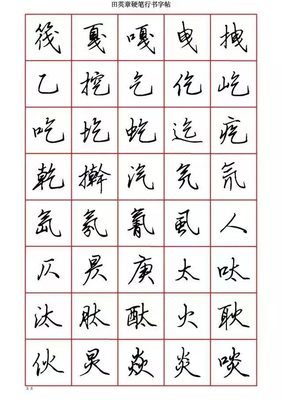 田英章硬笔行书字帖
筏 戛 嘎 曳 拽
乙 挖 乞 仡 屹
吃 圪 虼 迄 疙
乾 擀 汽 氖 氘
氙 氡 氰 虱 人
仄 炅 庚 太 呔
汰 肽 酞 火 耿
伙 炅 焱 炎 啖